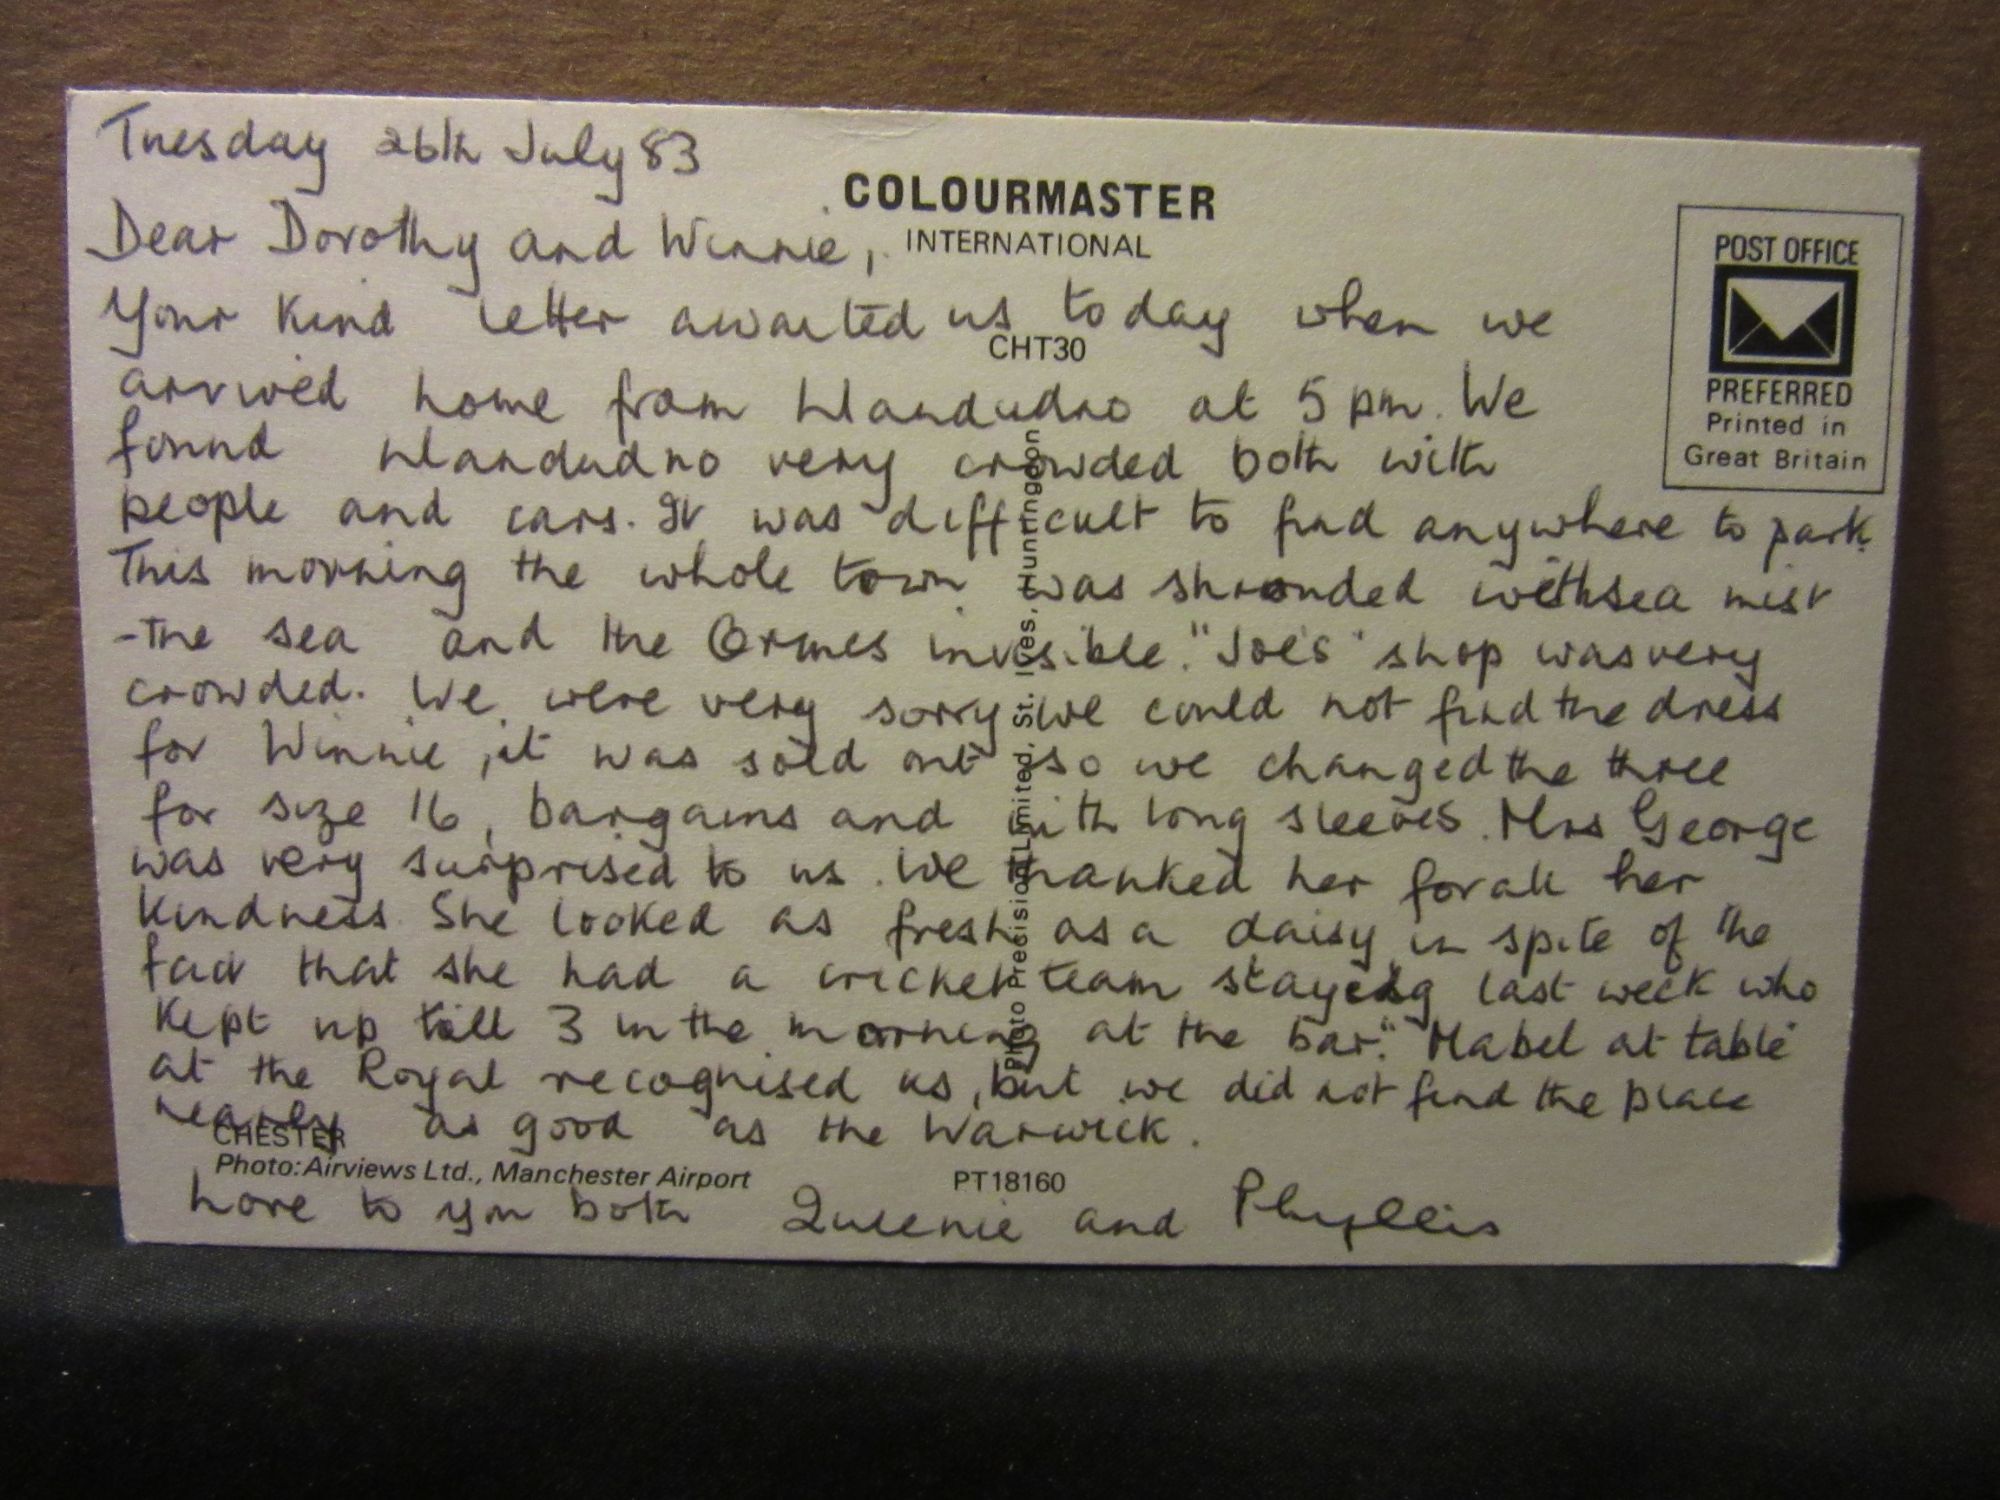 Tuesday 26th July 83
COLOURMASTER
INTERNATIONAL
CHT30
POST OFFICE
PREFERRED
Printed in
Great Britain
Dear Dorothy and Winnie,
Your kind letter awaited us today when we
arrived home from Llandudno at 5 pm. We
found Llandudno very crowded both with
people and cars. It was difficult to find anywhere to park.
This morning the whole town was shrouded with sea mist
- the sea and the Ormes invisible. "Joe's" shop was very
crowded. We were very sorry we could not find the dress
for Winnie, it was sold out so we changed the three
for size 16, bargains and with long sleeves. Mrs George
was very surprised to us. We thanked her for all her
kindness. She looked as fresh as a daisy in spite of the
fact that she had a cricket team staying last week who
kept up till 3 in the morning at the bar. "Mabel at table"
at the Royal recognised us, but we did not find the place
nearly as good as the Warwick.
CHESTER
Photo: Airviews Ltd., Manchester Airport
PT18160
Love to you both Queenie and Phyllis
Photo Precision Limited, St. Ives, Huntingdon